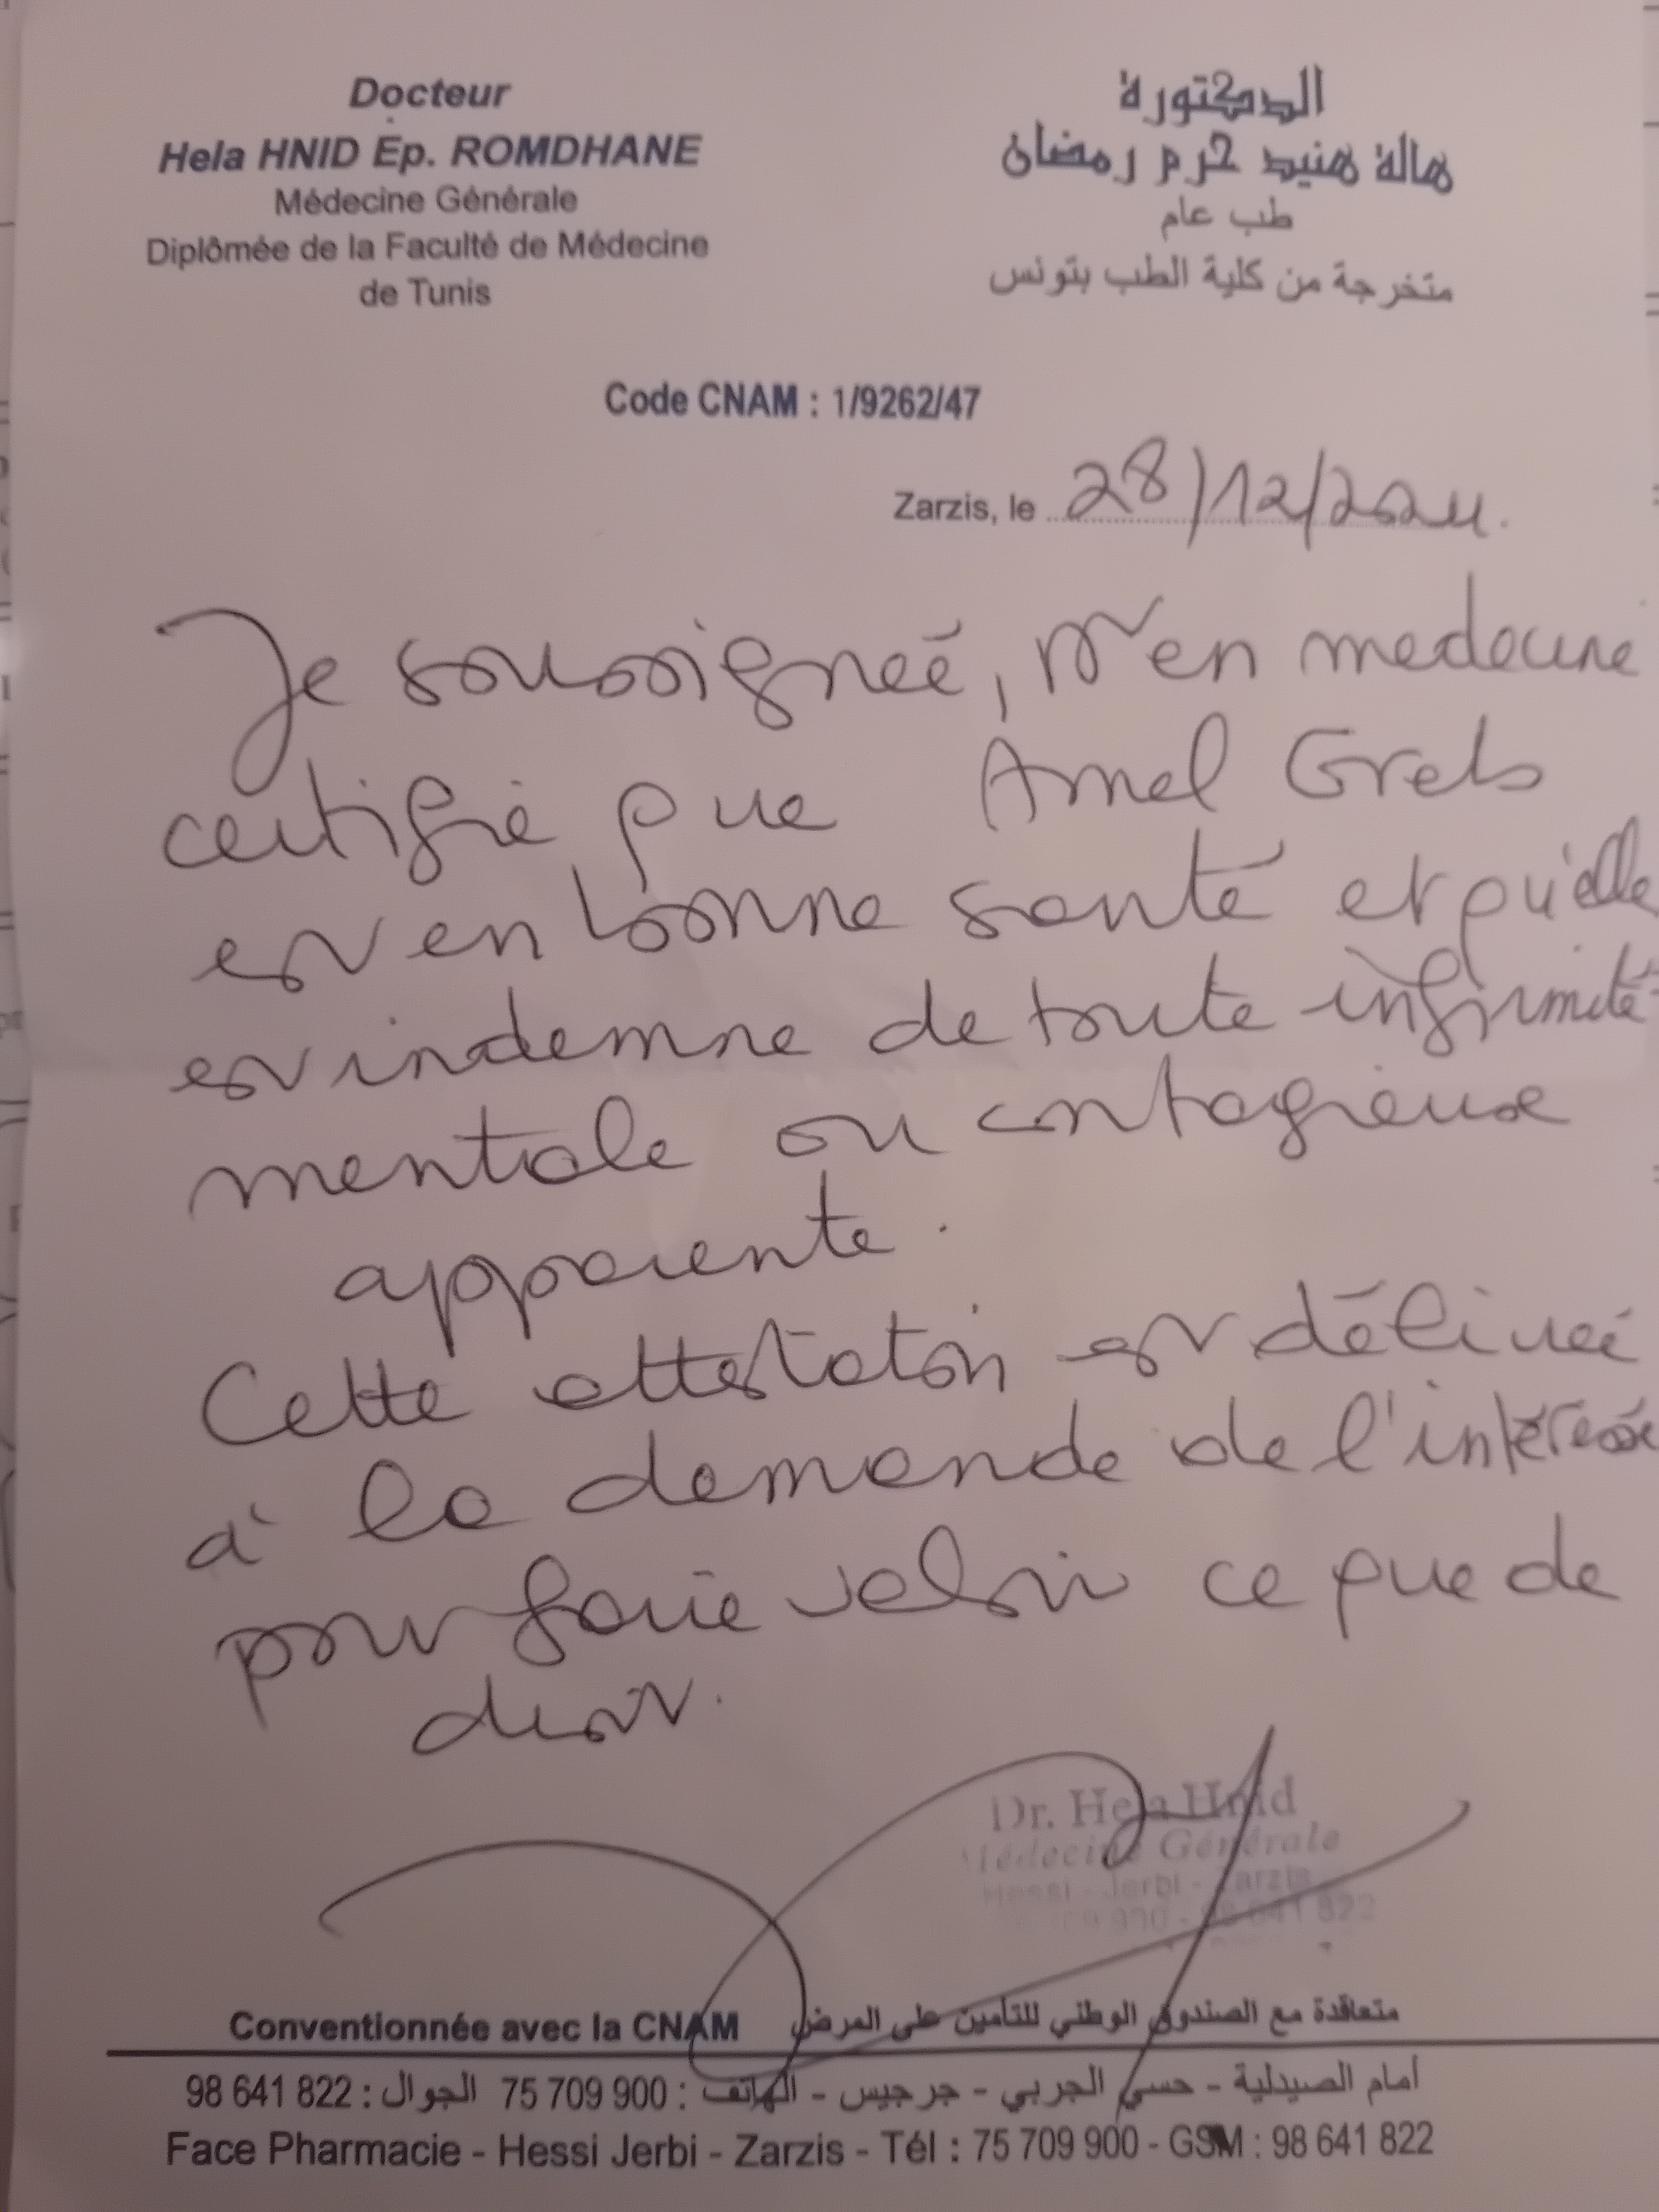 Docteur
Hela HNID Ep. ROMDHANE
Médecine Générale
Diplômée de la Faculté de Médecine
de Tunis
الدكتورة
هالة هنيد حرم رمضان
طب عام
متخرجة من كلية الطب بتونس
Code CNAM : 1/9262/47
Zarzis, le 28/12/2024.
Je soussignée, Dr en medecine
certifie que Amel
est en bonne santé et qu'elle
est indemne de toute infirmité
mentale ou contagieuse
apparente.
Cette attestation est délivrée
à la demande de l'intéressée
pour faire valoir ce que de
droit.
Dr. Hela Hnid
Médecine Générale
Hessi - Jerbi - Zarzis
900 - 98 641 822
Conventionnée avec la CNAM متعاقدة مع الصندوق الوطني للتأمين على المرض
أمام الصيدلية - حسي الجربي - جرجيس - الهاتف : 75 709 900 الجوال : 98 641 822
Face Pharmacie - Hessi Jerbi - Zarzis - Tél : 75 709 900 - GSM : 98 641 822